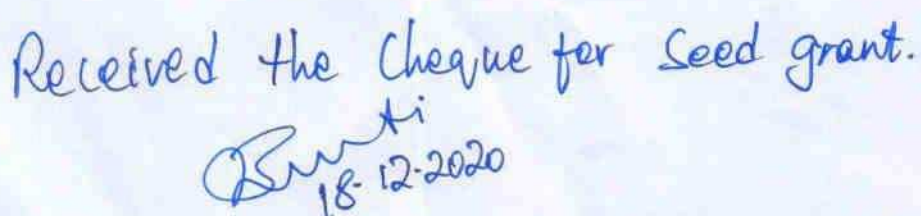 Received the Cheque for Seed grant.
18-12-2020